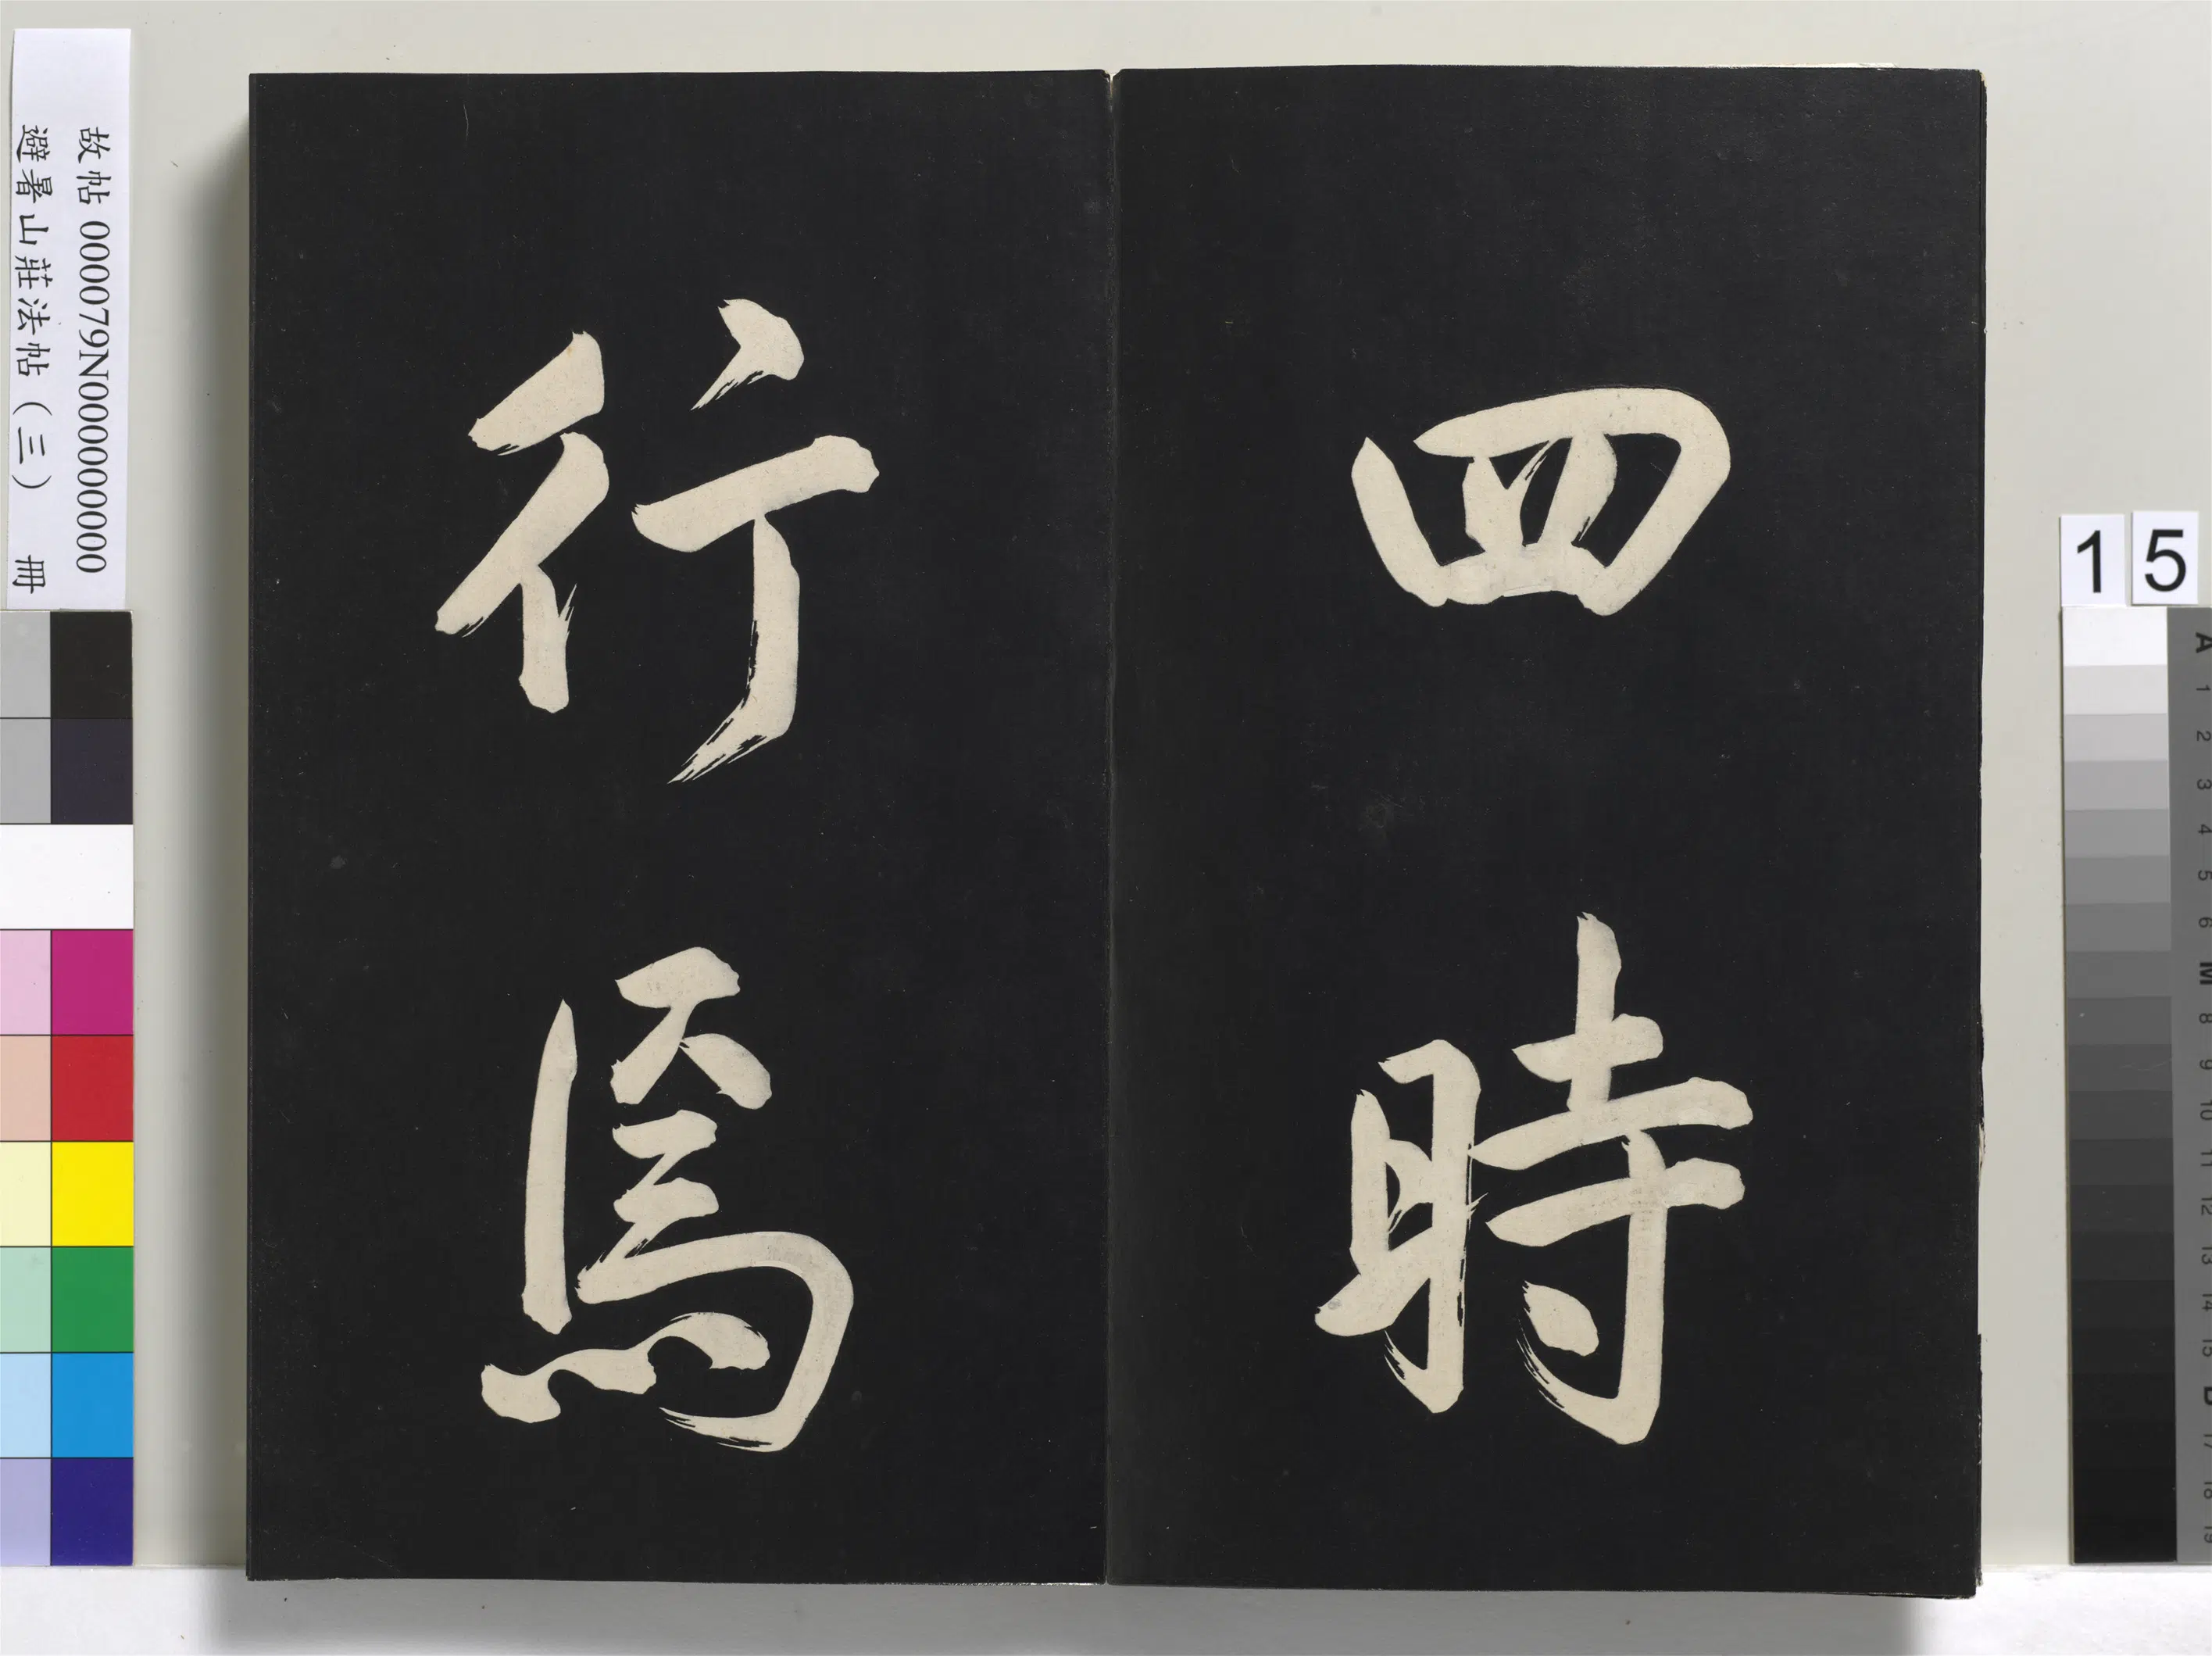 四時
行焉
故帖 000079N000000000
避暑山莊法帖（三） 冊
15
A
1
2
3
4
5
6
M
8
9
10
11
12
13
14
15
B
17
18
19